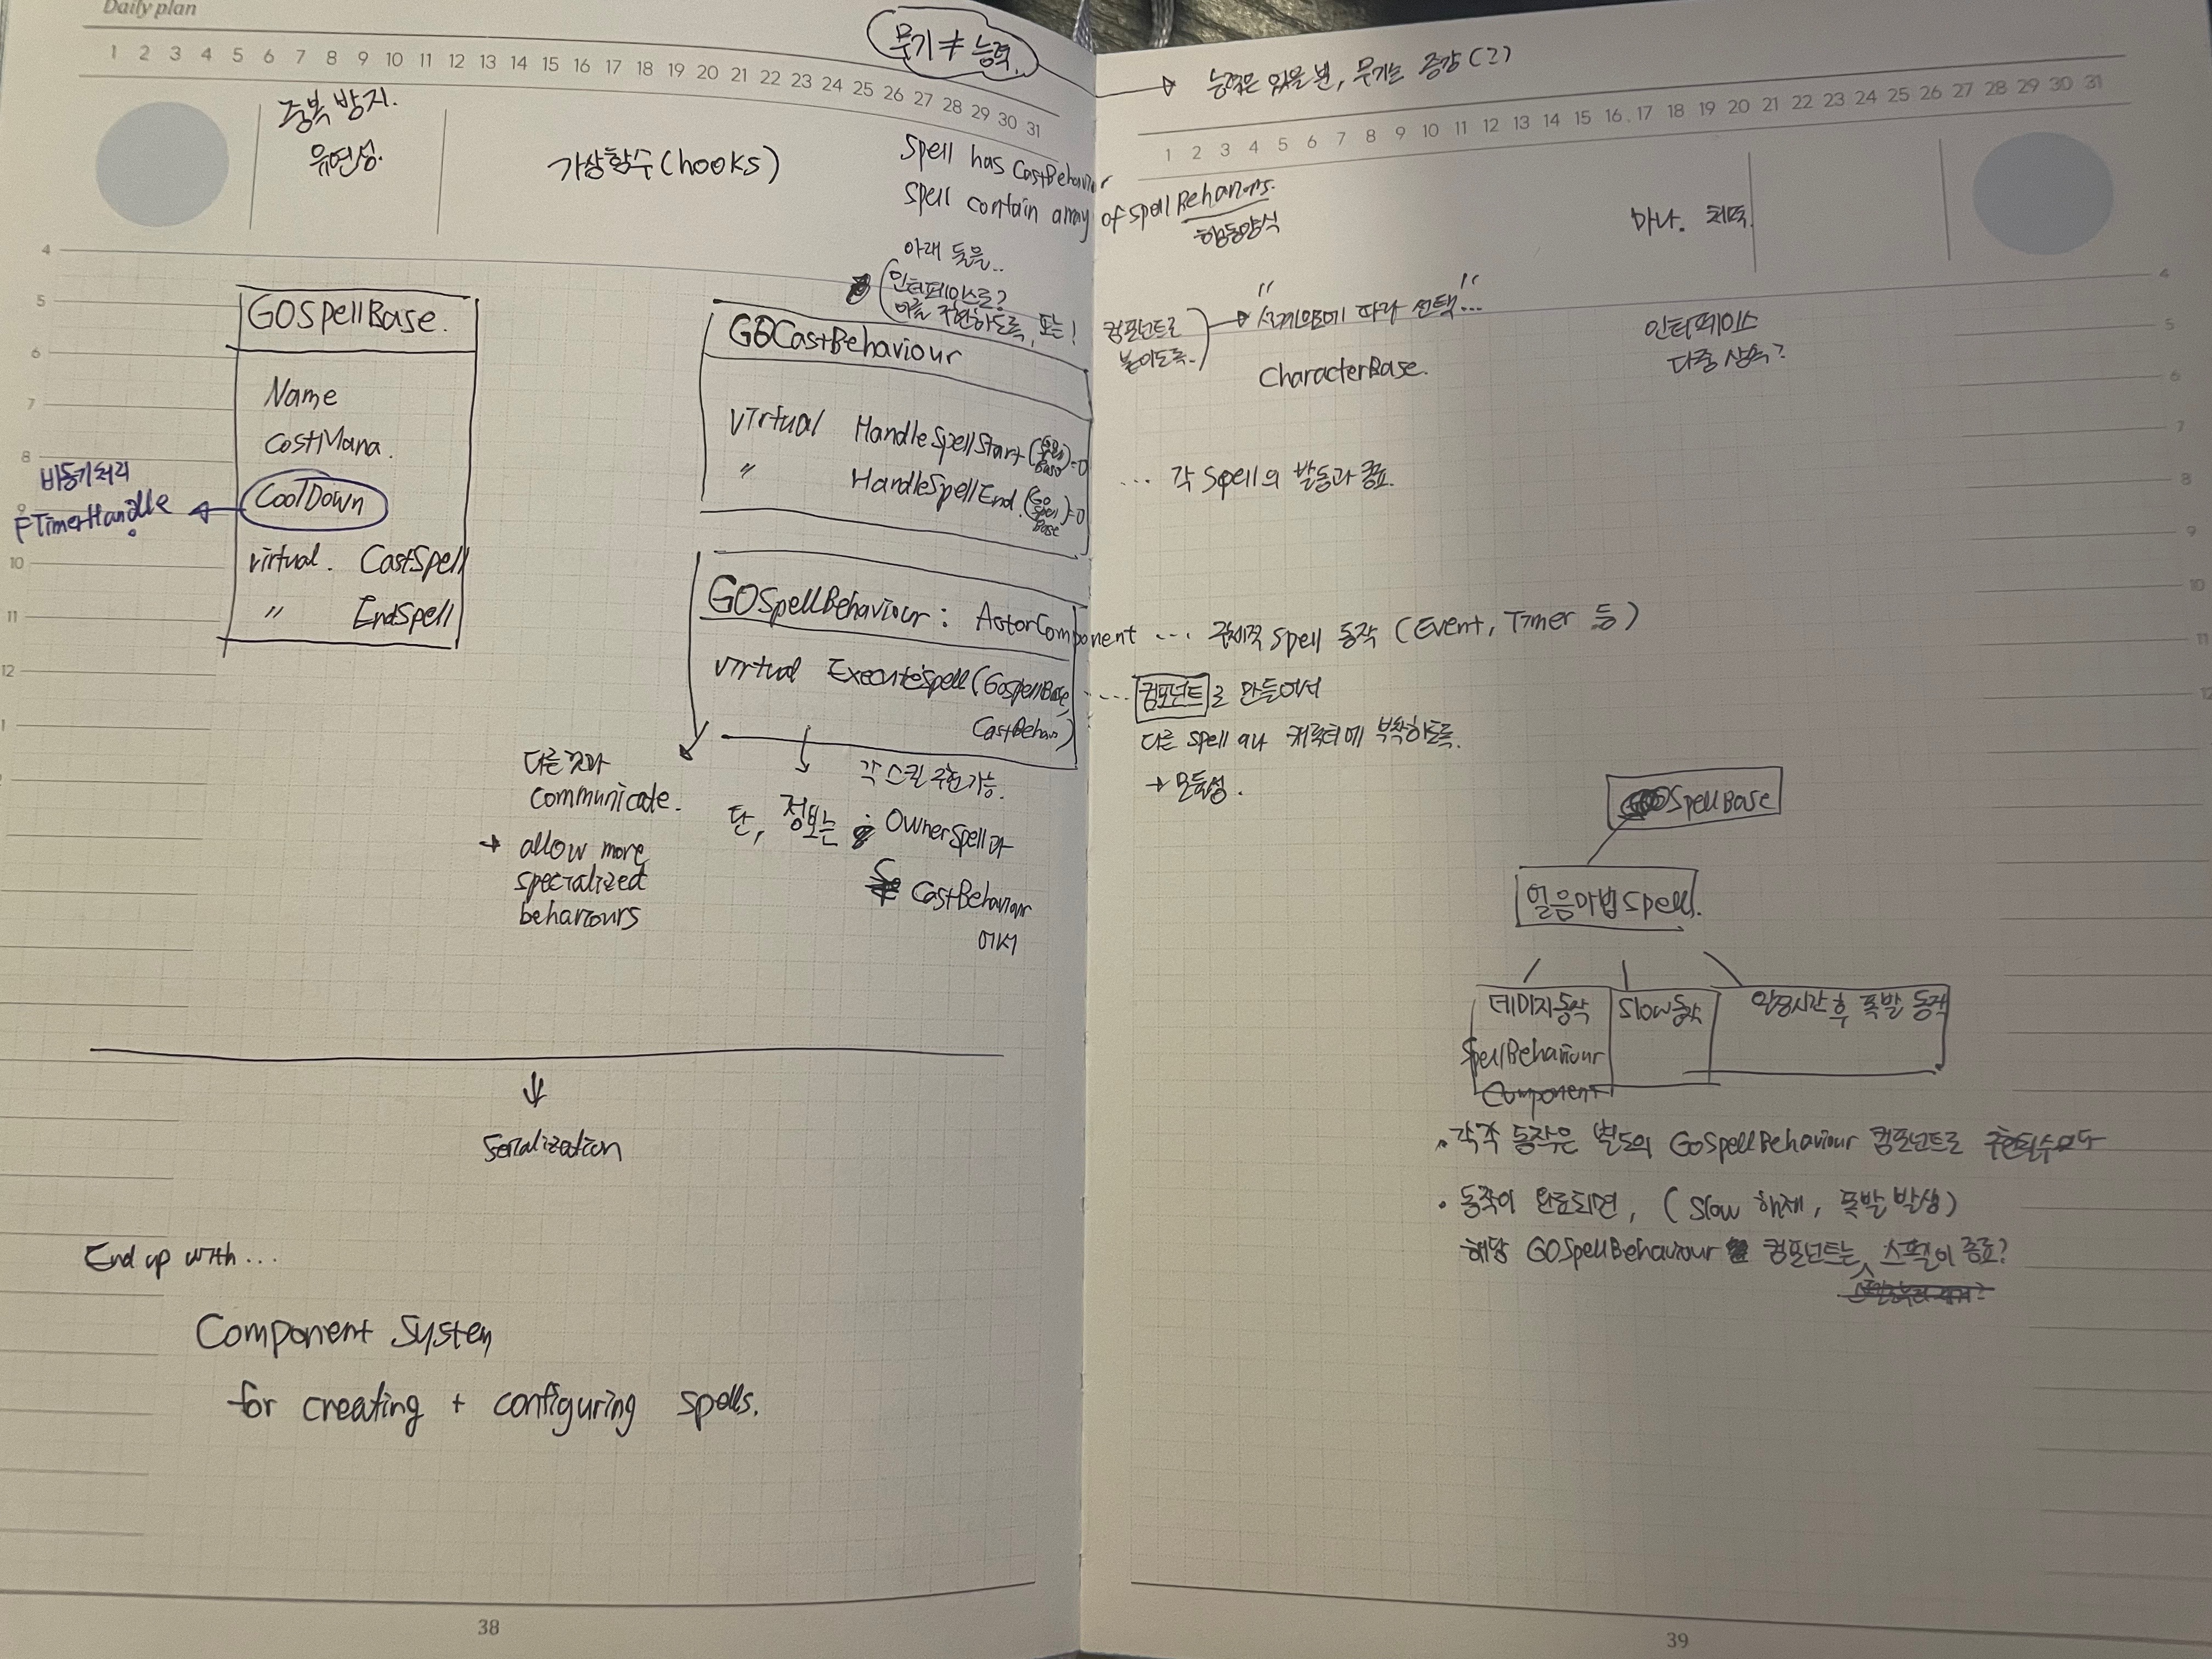 Daily plan
1 2 3 4 5 6 7 8 9 10 11 12 13 14 15 16 17 18 19 20 21 22 23 24 25 26 27 28 29 30 31
무기 ≠ 능력.
중복 방지.
유연성.
가상함수(hooks)
Spell has CastBehaviour
Spell contain array of Spell Behaviours.
행동양식
아래 둘은..
인터페이스로?
이를 구현하도록, 또는!
컴포넌트로
붙이도록.
4
5
6
7
8
9
10
11
12
1
GOSpellBase.
Name
CostMana.
CoolDown
비동기처리
FTimerHandle
virtual. CastSpell
〃 EndSpell
GOCastBehaviour
virtual HandleSpellStart(GO Spell Base)=0
〃 HandleSpellEnd.(GO Spell Base)=0
GOSpellBehaviour : ActorComponent ... 구체적 Spell 동작 (Event, Timer 등)
virtual ExecuteSpell(GoSpellBase,
CastBehav)
다른것과
communicate.
→ allow more
specialized
behaviours
각 스킬 구현가능.
단, 정보는 OwnerSpell과
CastBehaviour
에서
Serialization
End up with...
Component System
for creating + configuring spells.
38
→ 능력은 있을 뿐, 무기는 증강(?)
1 2 3 4 5 6 7 8 9 10 11 12 13 14 15 16 17 18 19 20 21 22 23 24 25 26 27 28 29 30 31
마나. 체력.
" 에 따라 선택... "
CharacterBase.
인터페이스
다중 상속?
4
5
6
7
8
9
10
11
12
... 각 Spell의 발동과 종료.
.... 컴포넌트로 만들어서
다른 spell 이나 캐릭터에 부착하도록.
→ 모듈성.
SpellBase
얼음마법 Spell.
데미지 동작
SpellBehaviour
Component
Slow동작
일정시간 후 폭발 동작
• 각각 동작은 별도의 GoSpellBehaviour 컴포넌트로 구현될수있다
• 동작이 완료되면, (Slow 해제, 폭발 발생)
해당 GOSpellBehaviour 컴포넌트는 스펠이 종료?
39